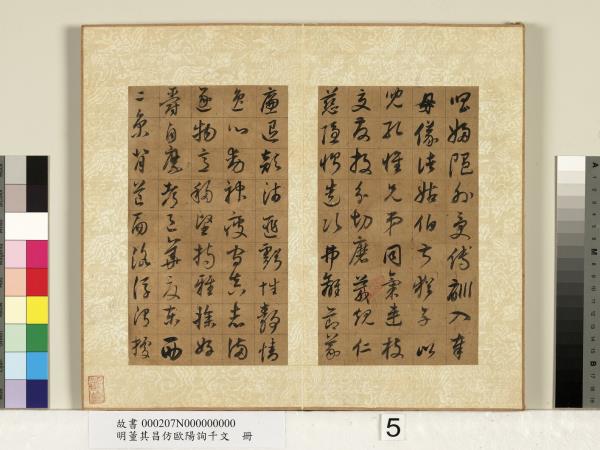 唱婦隨外受傅訓入奉
母儀諸姑伯叔猶子比
兒孔懷兄弟同氣連枝
交友投分切磨箴規仁
慈隱惻造次弗離節義
廉退顛沛匪虧性靜情
逸心動神疲守真志滿
逐物意移堅持雅操好
爵自縻都邑華夏東西
二京背芒面洛浮渭據
故書 000207N000000000
明董其昌仿歐陽詢千文 冊
5